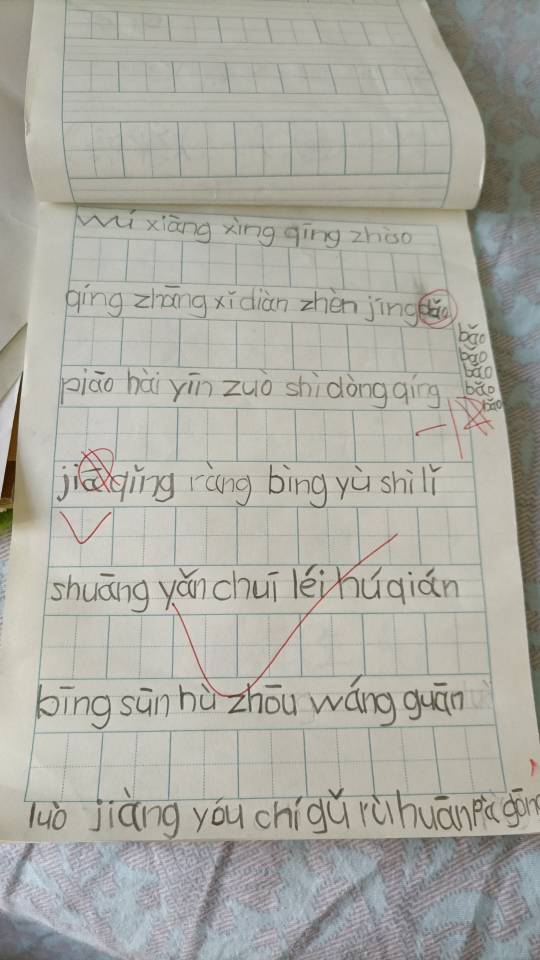 wú xiāng xìng qīng zhào
qíng zhāng xǐ diàn zhèn jīng bǎo
bǎo
bǎo
bǎo
bǎo
bǎo
piāo hài yīn zuò shì dòng qíng
jiā qǐng ràng bìng yù shì lǐ
shuāng yǎn chuī léi hú qián
bīng sūn hù zhōu wáng guān
luò jiàng yóu chí gǔ rù huān pà gōng